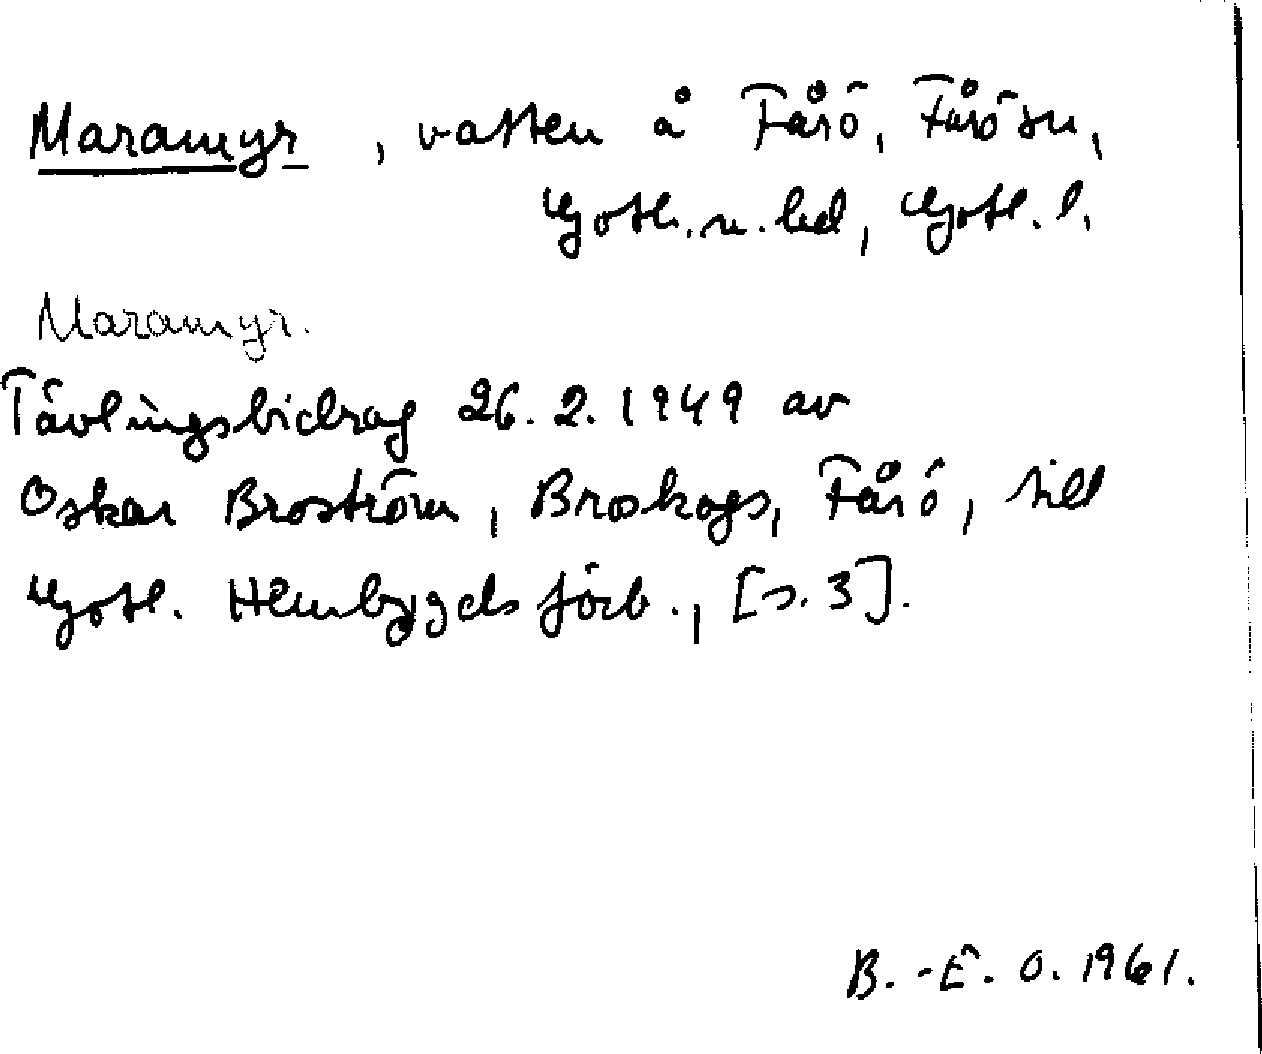 Maramyr, vatten å Fårö, Fårö sn,
Gotl. n. hd, Gotl. l.
Maramyr.
Tävlingsbidrag 26.2.1949 av
Oskar Broström, Broskogs, Fårö, till
Gotl. Hembygdsförb., [s. 3].
B.-E. O. 1961.